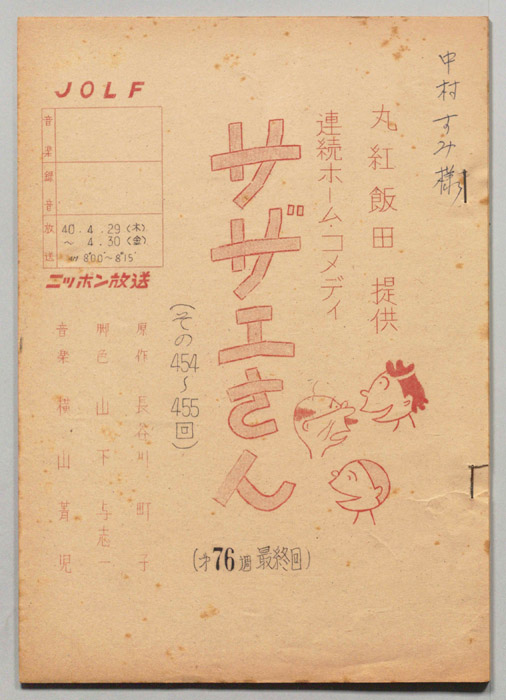 中村すみ様
丸紅飯田 提供
連続ホーム・コメディ
サザエさん
(その454~455回)
(才76週 最終回)
JOLF
音楽
録音
放送
40.4.29(木)
~ 4.30(金)
8'00"~8'15"
ニッポン放送
原作 長谷川町子
脚色 山下与志一
音楽 横山菁児